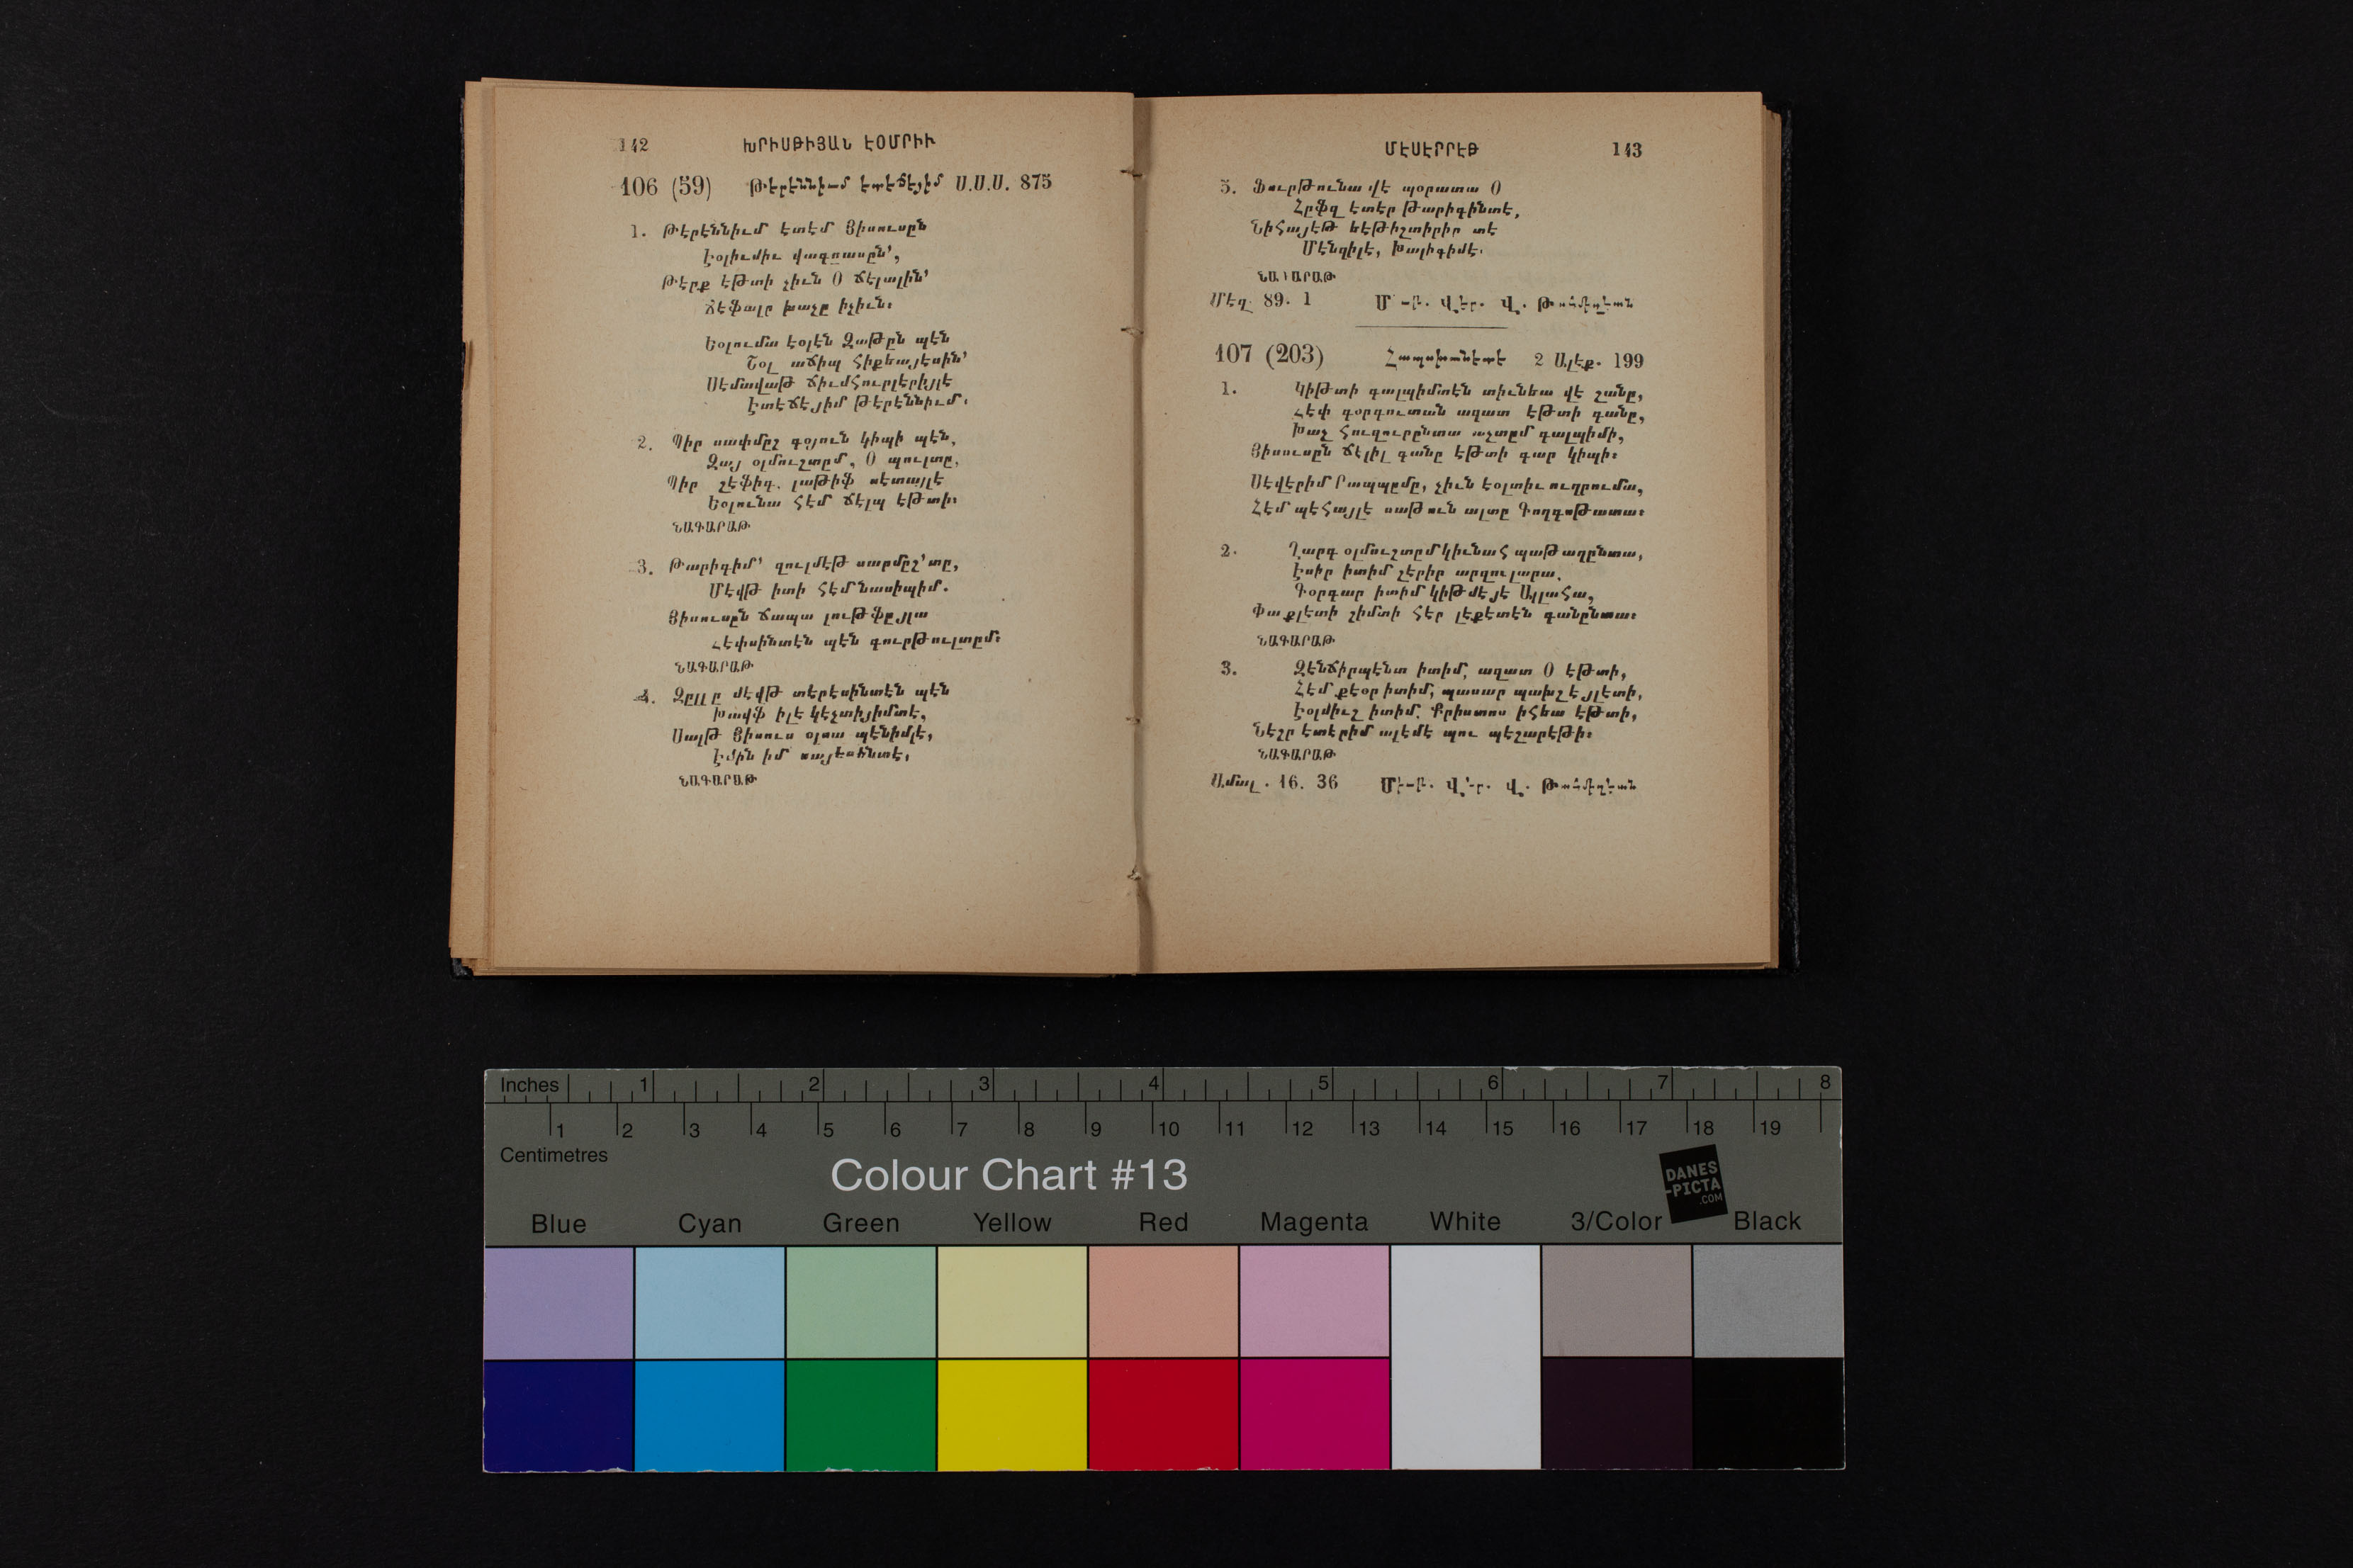 142 ԽՐԻՍԹԻՅԱՆ ԷՕՄՐԻՒ
106 (59) Թէրէննիւմ Էտէճէյիմ Ս.Ս.Ս. 875
1. Թէրէննիւմ էտէմ Յիսուսըն
Էօլիւմիւ վագըասըն՚,
Թէրք էթտի չիւն Օ ճէլալին՚
Ճէֆալը խաչը իչիւն։
Եօլումա էօլէն Զաթըն պէն
Շօլ աճիպ հիքեայէսին՚
Սէմավաթ ճիւմհուրլերիյլէ
Էտէճէյիմ թէրէննիւմ։
2. Պիր սափմըշ գօյուն կիպի պէն,
Զայ օլմուշտըմ, Օ պուլտը,
Պիր շէֆիգ, լաթիֆ սէտայլէ
Եօլունա հէմ ճէլպ էթտի։
ՆԱԳԱՐԱԹ
3. Թարիգիմ՚ զուլմէթ սարմըշ՚տը,
Մէվթ իտի հէմ նասիպիմ.
Յիսուսըն ճապա լութֆըյլա
Հէփսինտէն պէն գուրթուլտըմ։
ՆԱԳԱՐԱԹ
4. Զըլլը մէվթ տէրէսինտէն պէն
Խավֆ իլէ կէչտիյիմտէ,
Սալթ Յիսուս օլսա պէնիմլէ,
Էմին իմ սայէսինտէ,
ՆԱԳԱՐԱԹ
ՄԷՍԷՐՐԷԹ 143
5. Ֆուրթունա վէ պօրատա Օ
Հըֆզ էտէր թարիգինտէ,
Նիհայէթ եէթիշտիրիր տէ
Մէնզիլէ, Խալիգիմէ.
ՆԱԳԱՐԱԹ
Մէզ. 89. 1 Վ.
107 (203) Հապսխանէտէ 2 Ալէք. 199
1. Կիթտի գալպիմտէն տիւնեա վէ շանը,
Հէփ գօրգուտան ազատ էթտի գանը,
Խաչ հուզուրընտա աչտըմ գալպիմի,
Յիսուսըն ճէլիլ գանը էթտի գար կիպի։
Սէվէրիմ Րապպըմը, չիւն էօլտիւ ուղրումա,
Հէմ պէհայլէ սաթուն ալտը Գողգոթատա։
2. Ղարգ օլմուշտըմ կիւնահ պաթաղընտա,
Էսիր իտիմ շէրիր արզուլարա,
Գօրգար իտիմ կիթմէյէ Ալլահա,
Փաքլէտի շիմտի հէր լէքէտէն գանընտա։
ՆԱԳԱՐԱԹ
3. Զէնճիրպէնտ իտիմ, ազատ Օ էթտի,
Հէմ քեօր իտիմ, պասար պախշ էյլէտի,
Էօլմիւշ իտիմ, Քրիստոս իհեա էթտի,
Նէշր էտէրիմ ալէմէ պու պէշարէթի։
ՆԱԳԱՐԱԹ
Ամալ. 16. 36 Վ.
Inches 1 2 3 4 5 6 7 8
1 2 3 4 5 6 7 8 9 10 11 12 13 14 15 16 17 18 19
Centimetres
Colour Chart #13
DANES
-PICTA
.COM
Blue Cyan Green Yellow Red Magenta White 3/Color Black